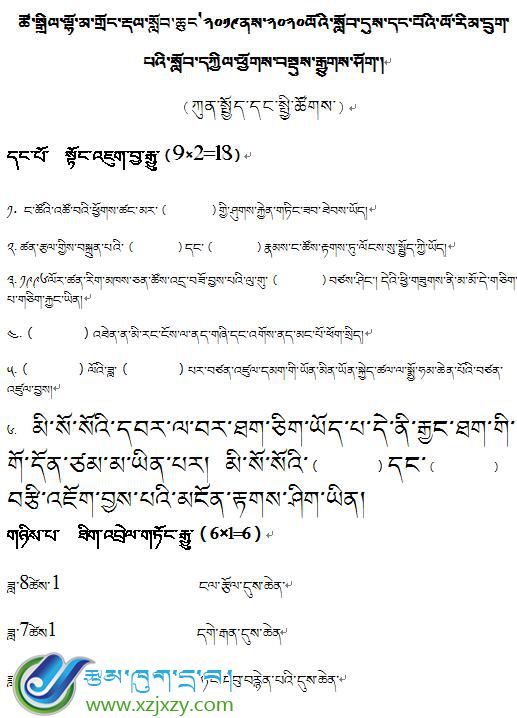 ཚ་སྒྲིལ་ལྷོ་མ་གྲོང་རྡལ་སློབ་ཆུང་༌༢༠༡༩ནས་༢༠༢༠ལོའི་སློབ་དུས་དང་པོའི་ལོ་རིམ་དྲུག་
པའི་སློབ་དཀྱིལ་ཕྱོགས་བསྡུས་རྒྱུགས་ཤོག།
(ཀུན་སྤྱོད་དང་སྤྱི་ཚོགས་)
དང་པོ། སྟོང་འཇུག་བྱ་རྒྱུ (9×2=18)
༡. ང་ཚོའི་འཚོ་བའི་ཕྱོགས་ཚང་མར་ ( ) གྱི་ཤུགས་རྐྱེན་གཏིང་ཟབ་ཐེབས་ཡོད།
༢. ཚན་རྩལ་གྱིས་བསྐྲུན་པའི་ ( ) དང་ ( ) རྣམས་ང་ཚོས་རྟགས་ཏུ་ལོངས་སུ་སྤྱོད་ཀྱི་ཡོད།
༣. ༡༩༩༦ལོར་ཚན་རིག་མཁས་ཅན་ཚོས་འདྲ་བཟོ་བྱས་པའི་ལུ་གུ་ ( ) བཙས་ཤིང་། དེའི་ཕྱི་གཟུགས་ནི་མ་མོ་དེ་གཅིག་
པ་གཅིག་རྐྱང་ཡིན།
༤. ( ) འཐེན་ན་མི་རང་ངོས་ལ་ནད་གཞི་དང་འགོས་ནད་མང་པོ་ཕོག་སྲིད།
༥. ( ) ལོའི་ཟླ་ ( ) པར་བཙན་འཛུལ་དམག་གི་ཡོན་མིན་ཡོན་སྐྱེད་ཚལ་ལ་སྨྱོ་ཧམ་ཆེན་པོའི་བཙན་
འཛུལ་བྱས།
༦. མི་སོ་སོའི་དབར་ལ་བར་ཐག་ཅིག་ཡོད་པ་དེ་ནི་རྒྱང་ཐག་གི་
གོ་དོན་ཙམ་མ་ཡིན་པར། མི་སོ་སོའི་( )དང་( )
བརྩི་འཇོག་བྱས་པའི་མངོན་རྟགས་ཤིག་ཡིན།
གཉིས་པ། ཐིག་འབྲེལ་གཏོང་རྒྱུ (6×1=6)
ཟླ་8ཚེས་1 ངལ་རྩོལ་དུས་ཆེན་
ཟླ་7ཚེས1 དགེ་རྒན་དུས་ཆེན་
བརྙེན་པའི་དུས་ཆེན་
རྩམ་ཁུག་དྲ་བ།
www.xzjxzy.com